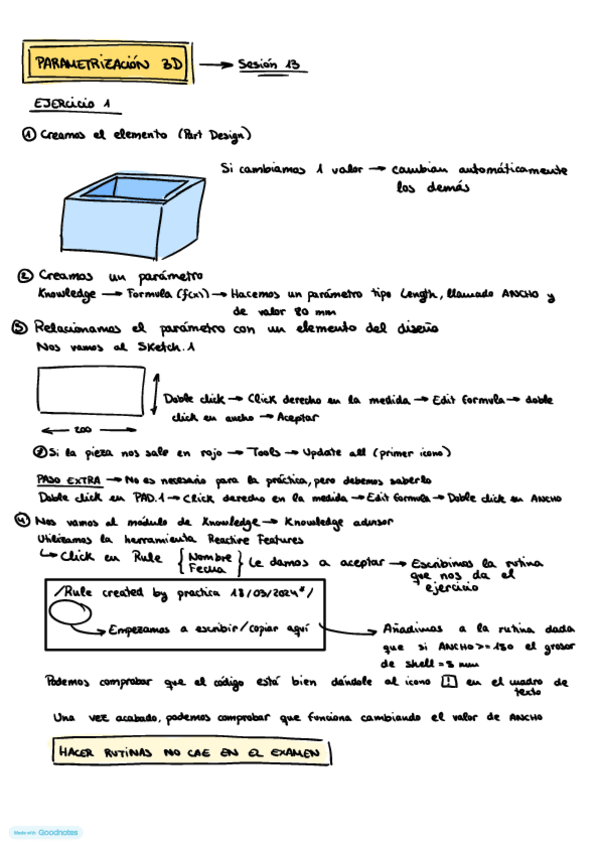 PARAMETRIZACIÓN 3D → Sesión 13
EJERCICIO 1
① Creamos el elemento (Part Design)
Si cambiamos 1 valor → cambian automáticamente
los demás
② Creamos un parámetro
Knowledge → Formula (f(x)) → Hacemos un parámetro tipo Length, llamado ANCHO y
de valor 80 mm
③ Relacionamos el parámetro con un elemento del diseño
Nos vamos al Sketch.1
Doble click → Click derecho en la medida → Edit formula → doble
click en ancho → Aceptar
200
Si la pieza nos sale en rojo → Tools → Update all (primer icono)
PASO EXTRA → No es necesario para la práctica, pero debemos saberlo
Doble click en PAD.1 → Click derecho en la medida → Edit formula → Doble click en ANCHO
④ Nos vamos al módulo de Knowledge → Knowledge advisor
Utilizamos la herramienta Reactive Features
↳ Click en Rule { Nombre
Fecha } Le damos a aceptar → Escribimos la rutina
que nos da el
ejercicio
/Rule created by practica 18/03/2024*/
→ Empezamos a escribir/copiar aquí
→ Añadimos a la rutina dada
que si ANCHO>=150 el grosor
de shell=8 mm
Podemos comprobar que el código está bien dándole al icono [!] en el cuadro de
texto
Una vez acabado, podemos comprobar que funciona cambiando el valor de ANCHO
HACER RUTINAS NO CAE EN EL EXAMEN
Made with Goodnotes